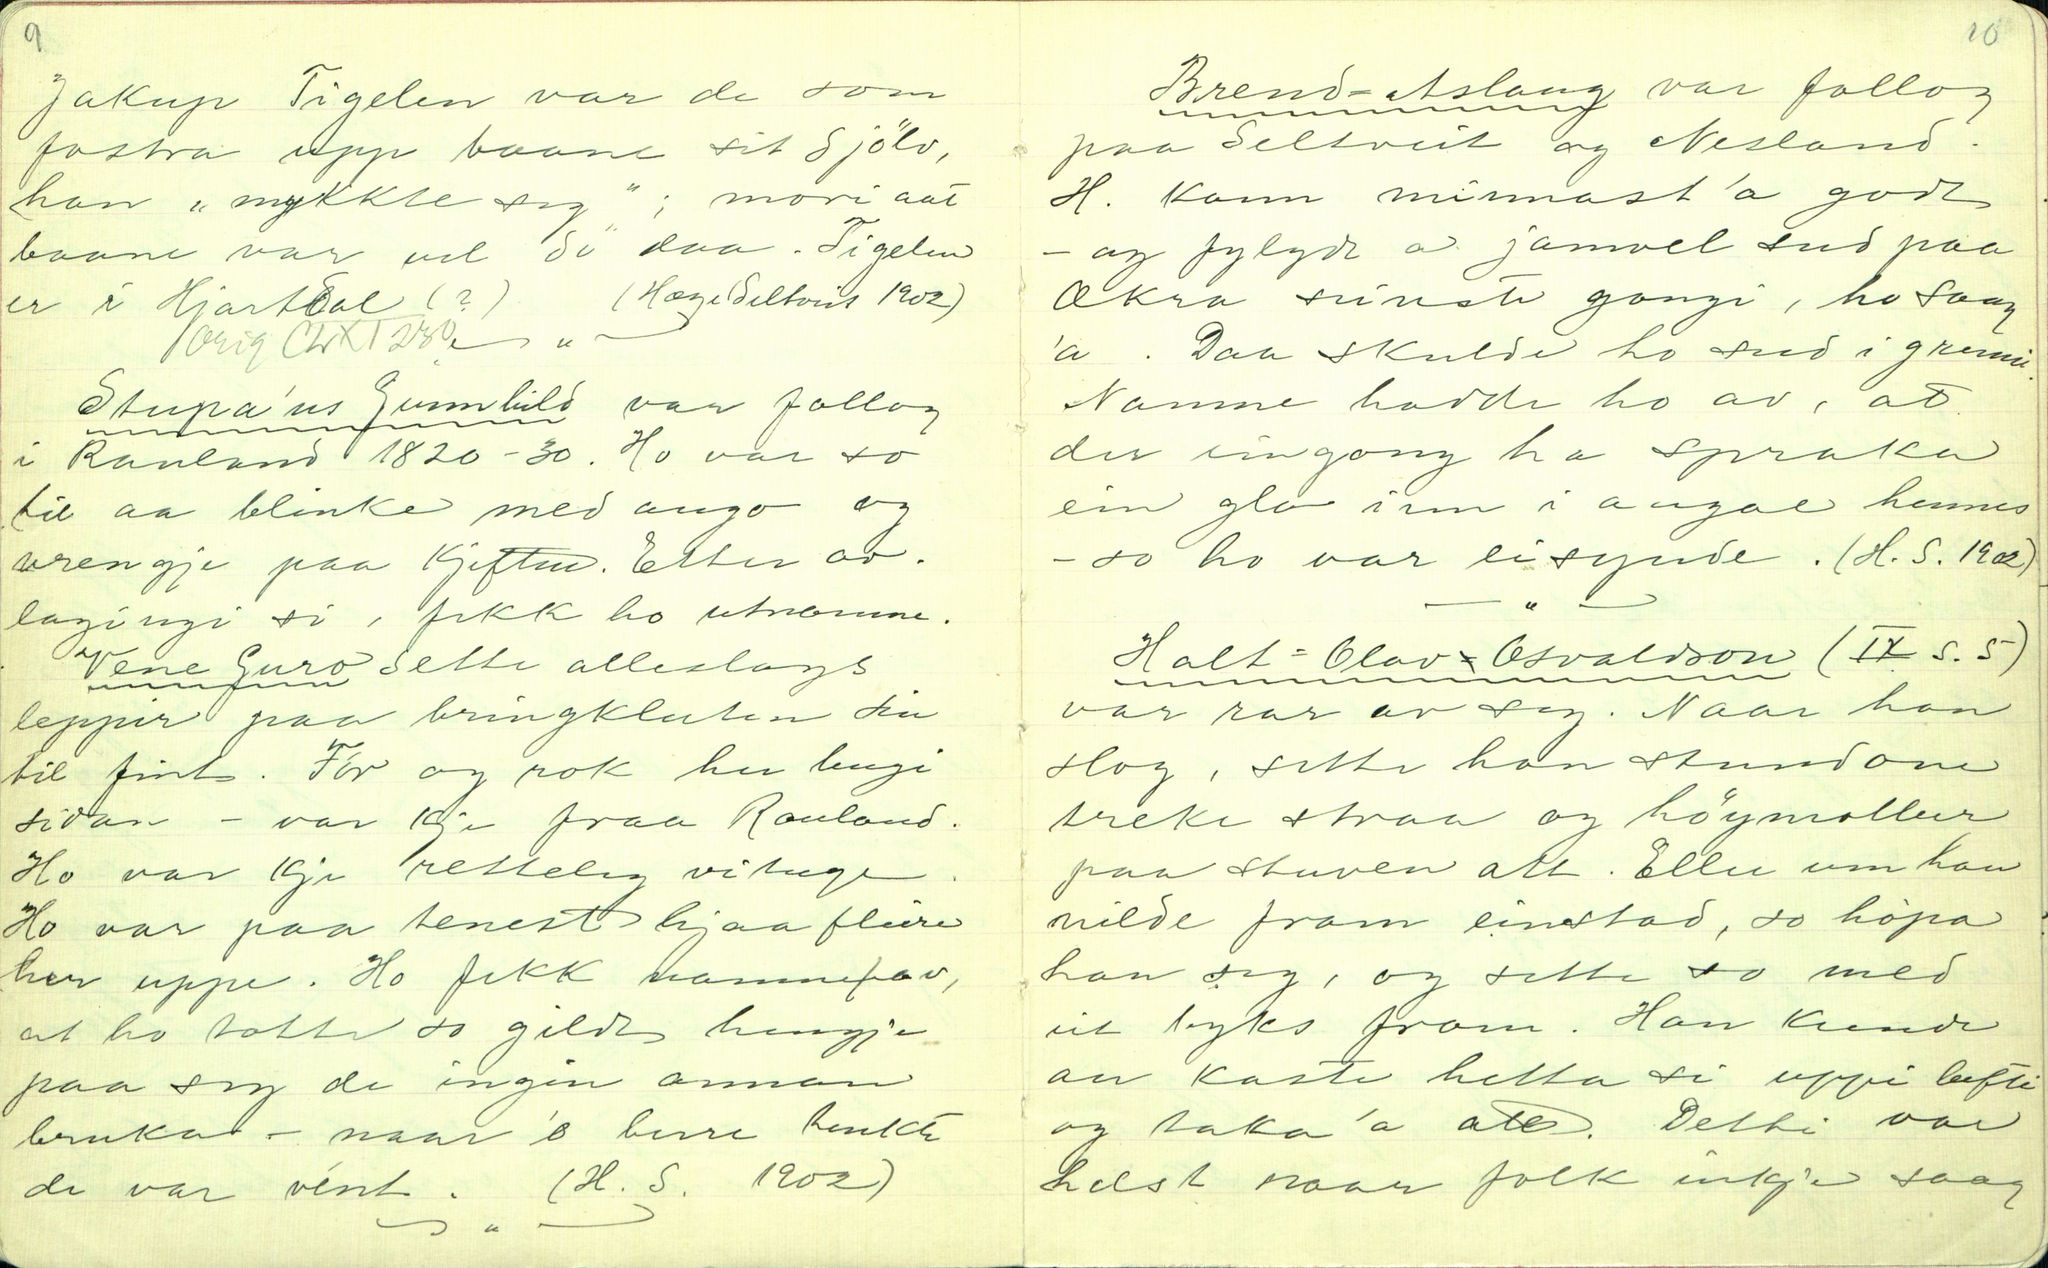 9
Jakup Tigelen var de som
fostra upp baane sit sjölv,
han „mykkte seg"; mori aat
baane var vel dö daa. Tigelen
er i Hjartdal (?) (Hæge Seltveit 1902)
Orig
— „ —
Stupa'us Gunnhild var fallog
i Rauland 1820-30. Ho var so
til aa blinke med augo og
vrengje paa kjeften. Etter av-
lagingi si, fekk ho utnamne.
Vene Guro sette alleslags
leppir paa bringkluten sin
til fint. Fór og rok her lengi
sidan – var kje fraa Rauland.
Ho var kje retteleg vituge.
Ho var paa tenest hjaa fleire
her uppe. Ho fekk namne av,
at ho totte so gildt hengje
paa seg de ingin annan
bruka – naar 'o berre tenkte
de var vént. (H. S. 1902)
— „ —
10
Brend-Aslaug var fallog
paa Seltveit og Nesland.
H. kann minnast 'a godt
– og fylgde a jamvel sud paa
Økra sinste gongi, ho saag
'a. Daa skulde ho sud i grenni.
Namne hadde ho av, at
der eingong ha spraka
ein glo inn i augae hennes
– so ho var eisynde. (H. S. 1902)
— „ —
Halt-Olav Osvaldson (IX S. 5)
var rar av seg. Naar han
slog, sette han stundone
treke straa og höymollur
paa stuven att. Elle um han
vilde fram einstad, so hòpa
han seg, og sette so med
eit byks fram. Han kunde
au kaste hetta si uppi lufti
og taka 'a att. Detti var
helst naar folk inkje saag